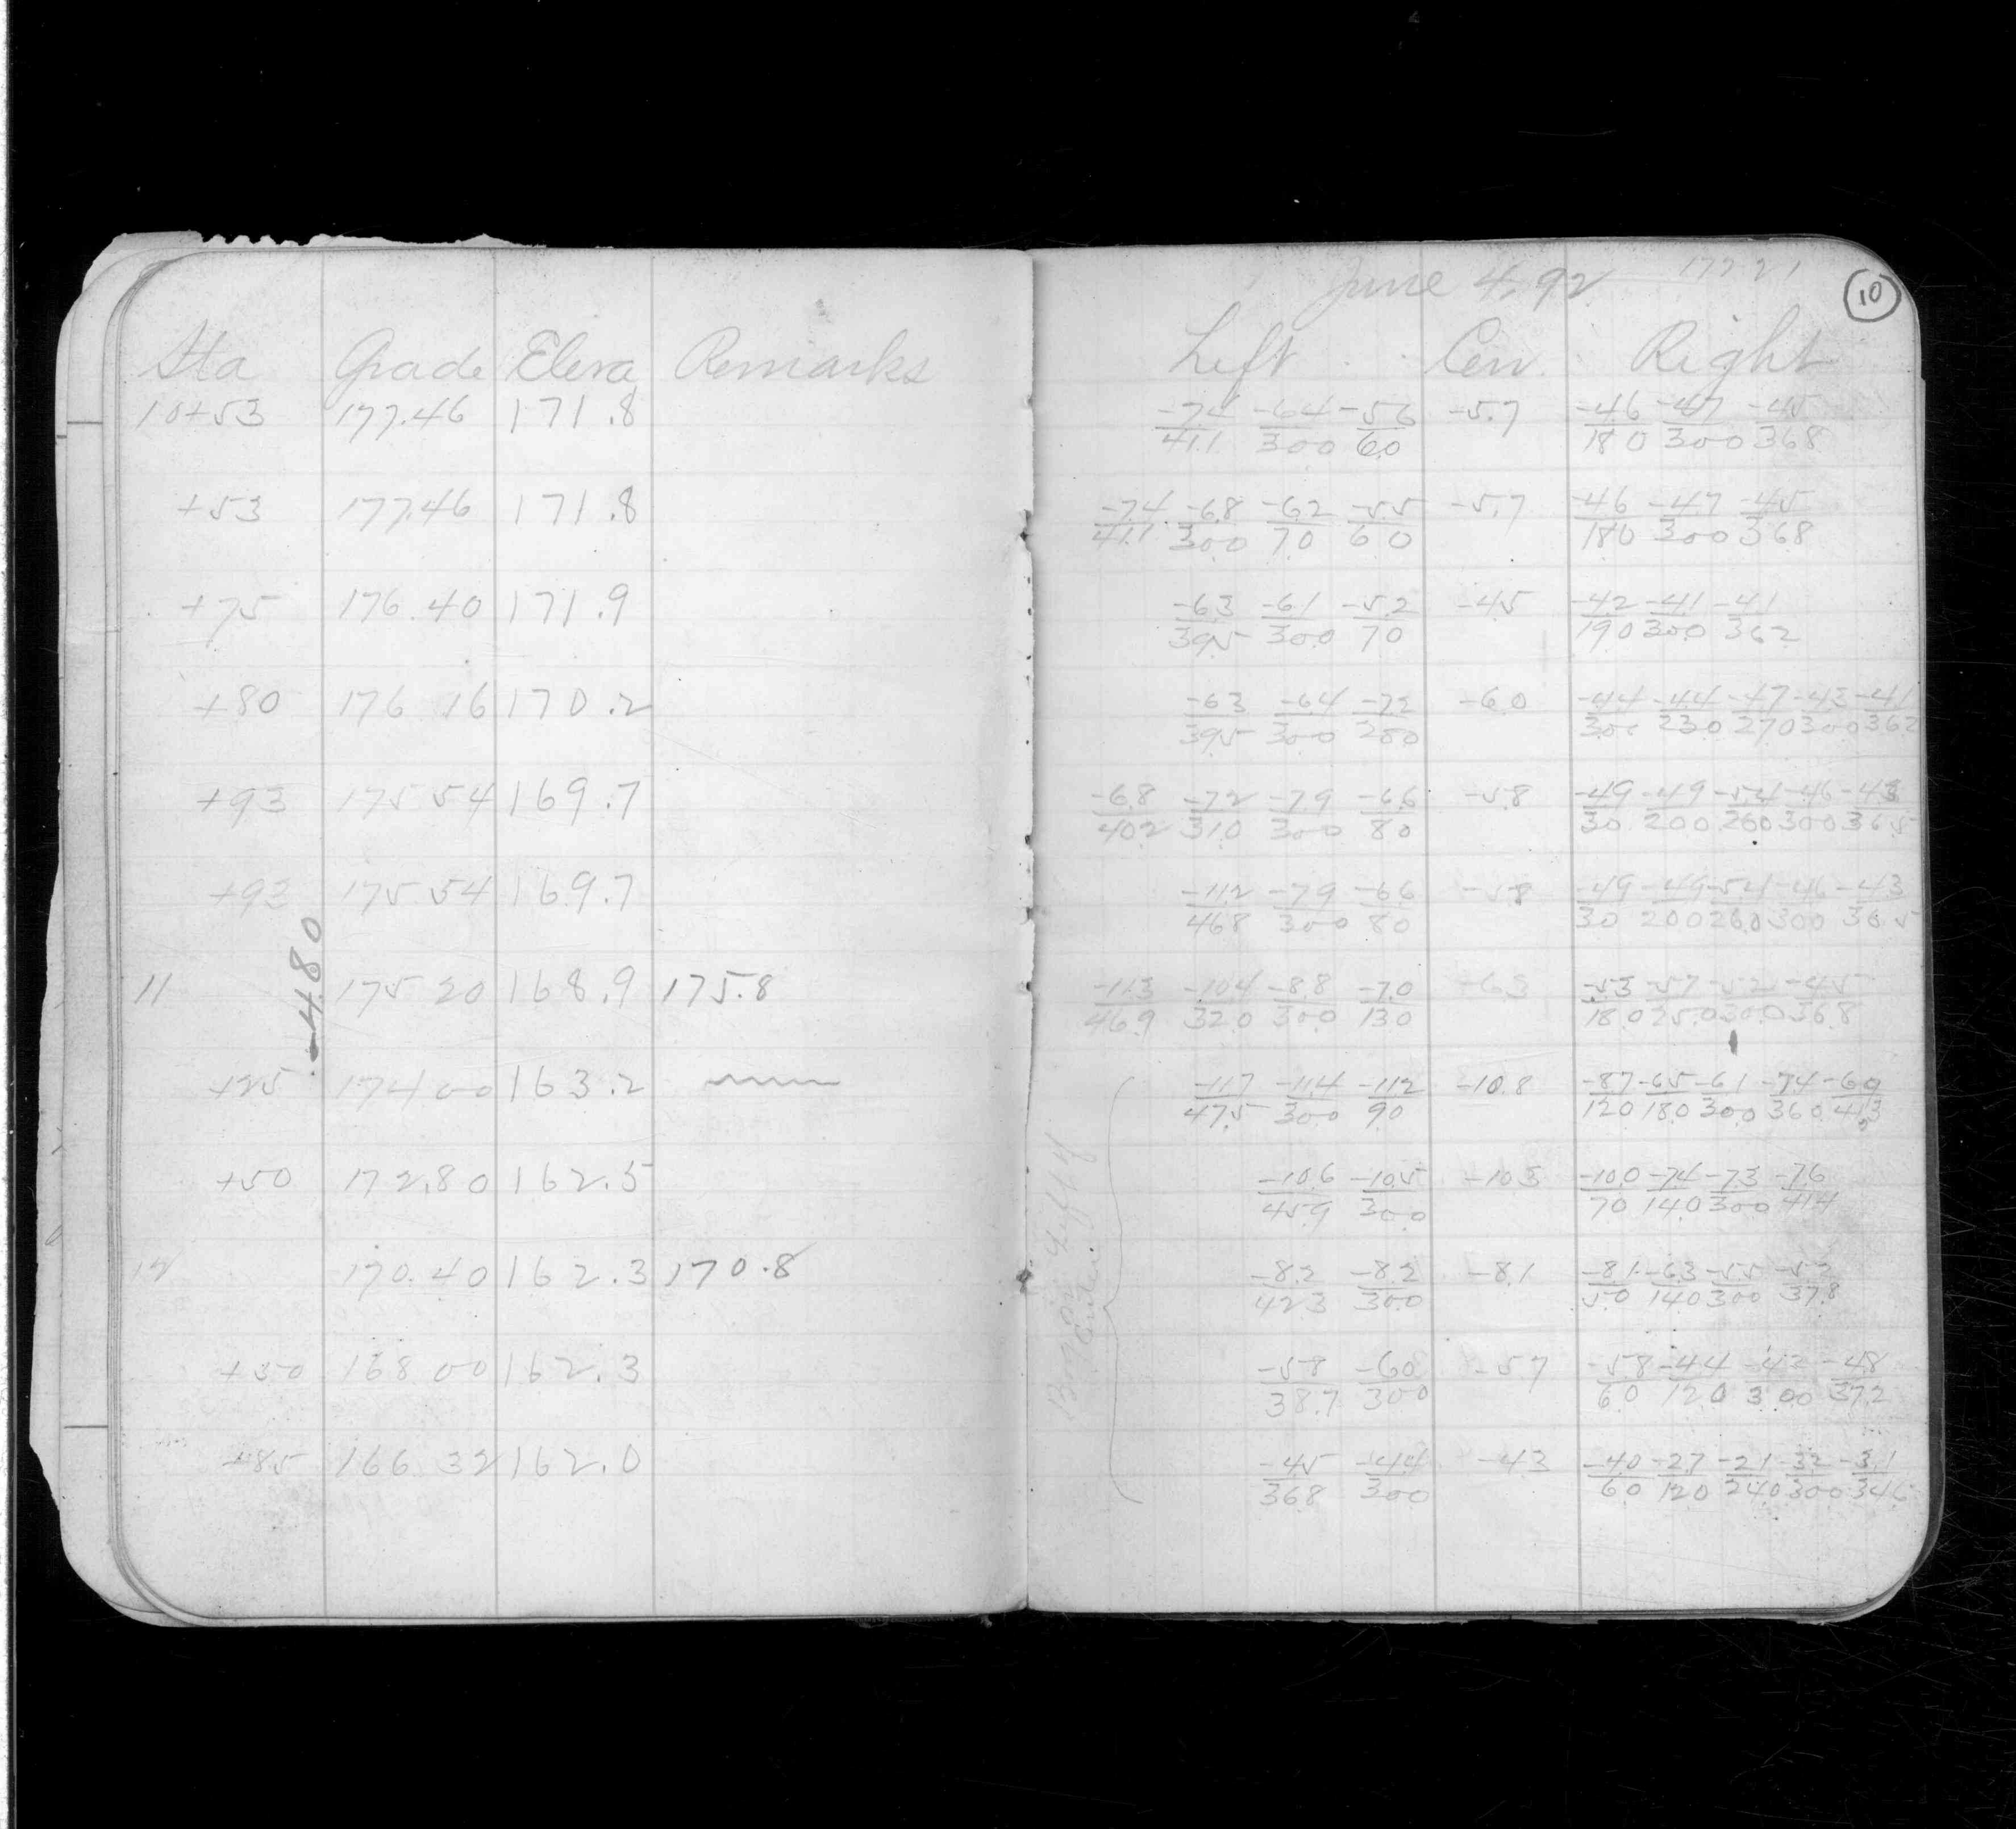 June 4, 92 177 21 10
Sta Grade Eleva Remarks Left Cen. Right
10+53 177.46 171.8 -7.4/41.1 -6.4/30.0 -5.6/6.0 -5.7 -4.6/18.0 -4.7/30.0 -4.5/36.8
+53 177.46 171.8 -7.4/41.1 -6.8/30.0 -6.2/7.0 -5.5/6.0 -5.7 -4.6/18.0 -4.7/30.0 -4.5/36.8
+75 176.40 171.9 -6.3/39.5 -6.1/30.0 -5.2/7.0 -4.5 -4.2/19.0 -4.1/30.0 -4.1/36.2
+80 176 16 170.2 -6.3/39.5 -6.4/30.0 -7.2/28.0 -6.0 -4.4/30.0 -4.4/23.0 -4.7/27.0 -4.3/30.0 -4.1/36.2
+93 175 54 169.7 -6.8/40.2 -7.2/31.0 -7.9/30.0 -6.6/8.0 -5.8 -4.9/3.0 -4.9/20.0 -5.4/26.0 -4.6/30.0 -4.3/36.5
+93 175.54 169.7 -11.2/46.8 -7.9/30.0 -6.6/8.0 -5.8 -4.9/3.0 -4.9/20.0 -5.4/26.0 -4.6/30.0 -4.3/36.5
-4.80
11 175 20 168.9 175.8 -11.3/46.9 -10.4/32.0 -8.8/30.0 -7.0/13.0 -6.3 -5.3/18.0 -5.7/25.0 -5.2/30.0 -4.5/36.8
+25 174 00 163.2 -11.7/47.5 -11.4/30.0 -11.2/9.0 -10.8 -8.7/12.0 -6.5/18.0 -6.1/30.0 -7.4/36.0 -6.9/41.3
+50 172.80 162.5 -10.6/45.9 -10.5/30.0 -10.3 -10.0/7.0 -7.4/14.0 -7.3/30.0 -7.6/41.4
12 170.40 162.3 170.8 -8.2/42.3 -8.2/30.0 -8.1 -8.1/5.0 -6.3/14.0 -5.5/30.0 -5.2/37.8
+50 168 00 162.3 -5.8/38.7 -6.0/30.0 -5.7 -5.8/6.0 -4.4/12.0 -4.2/30.0 -4.8/37.2
+85 166 32 162.0 -4.5/36.8 -4.4/30.0 -4.3 -4.0/6.0 -2.7/12.0 -2.1/24.0 -3.2/30.0 -3.1/34.6